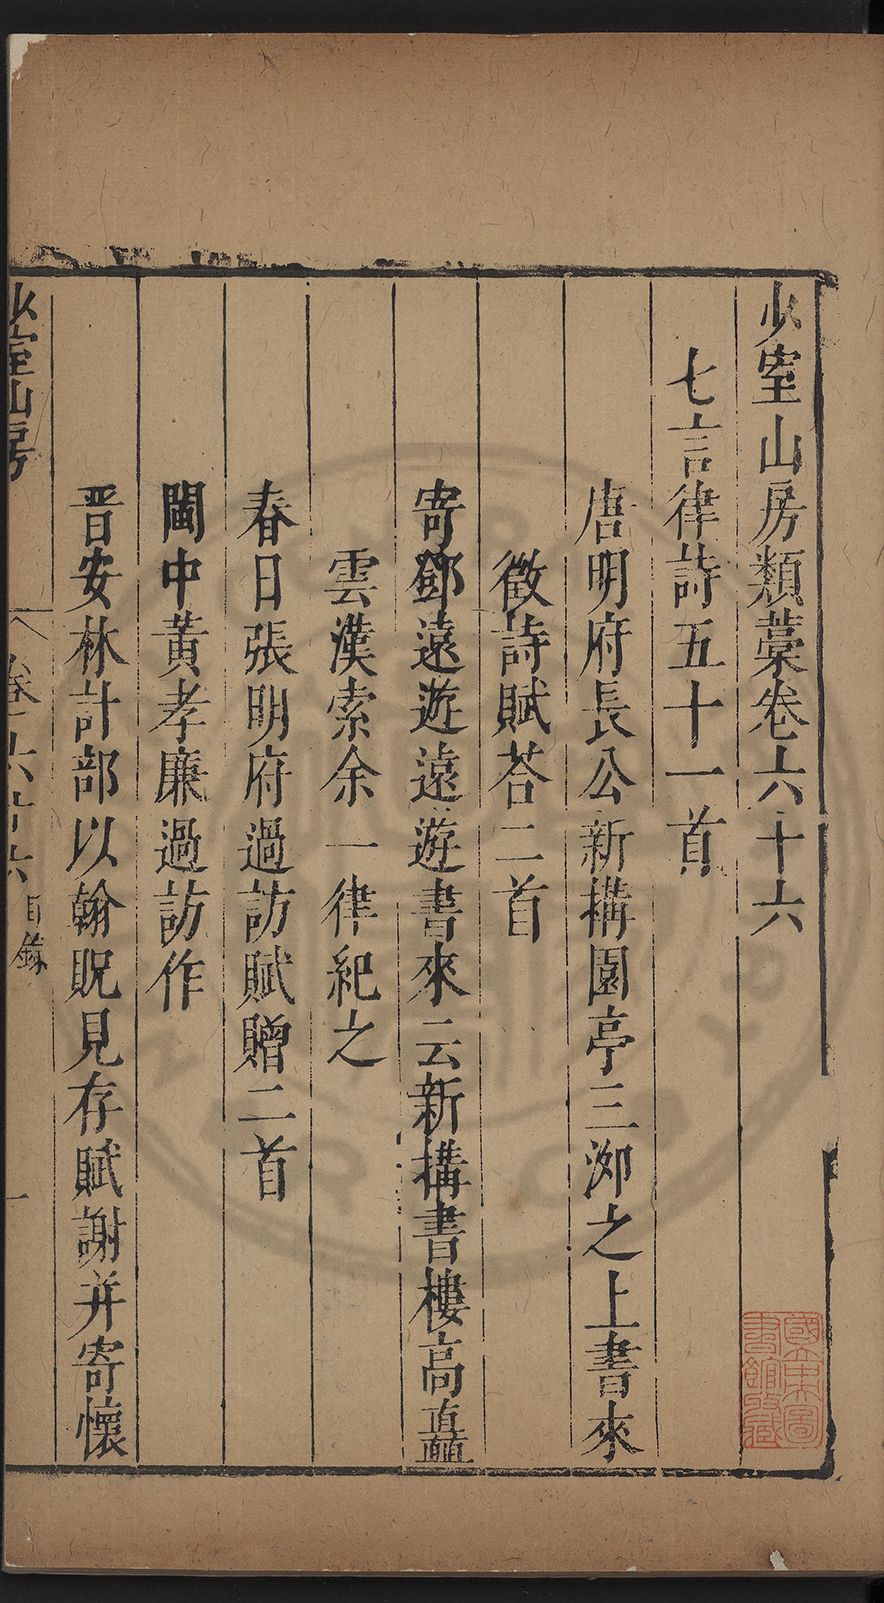 少室山房類藁卷六十六
七言律詩五十一首
唐明府長公新構園亭三泖之上書來
徵詩賦荅二首
寄鄧遠遊遠遊書來云新搆書樓高矗
雲漢索余一律紀之
春日張明府過訪賦贈二首
閩中黃孝廉過訪作
晋安林計部以翰貺見存賦謝并寄懷
少室山房
卷六十六 目錄
一
國立中央圖書館收藏